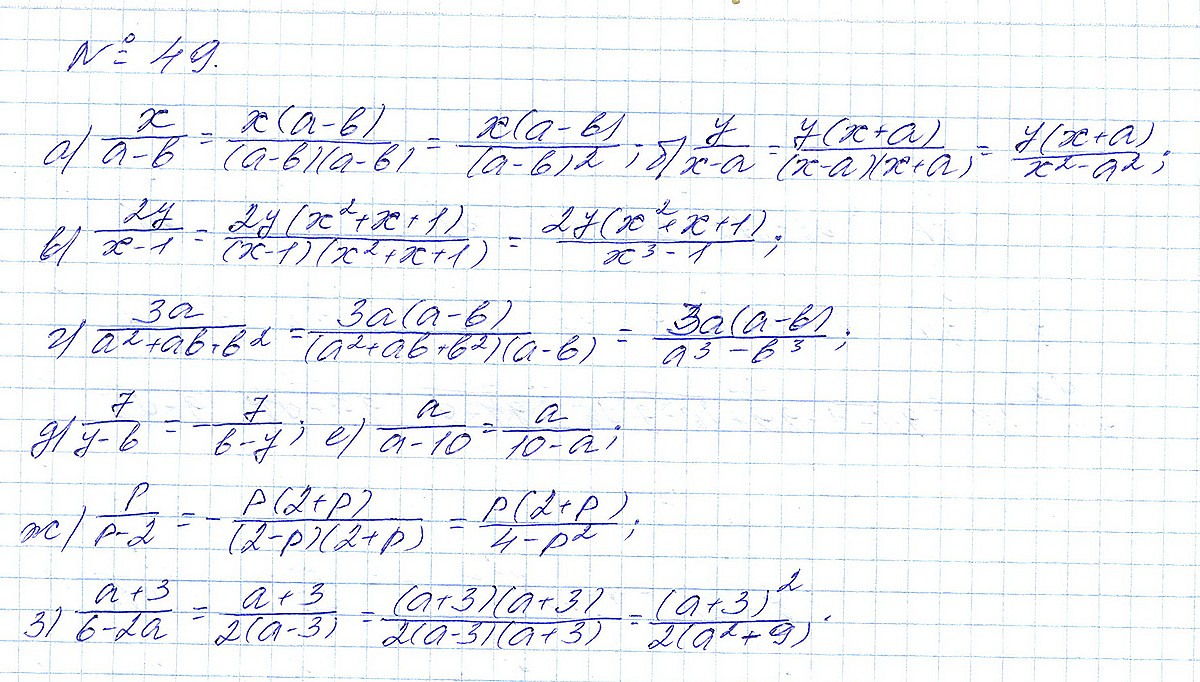 № 49.
а) x/(a-b) = x(a-b)/((a-b)(a-b)) = x(a-b)/(a-b)²; б) y/(x-a) = y(x+a)/((x-a)(x+a)) = y(x+a)/(x²-a²);
в) 2y/(x-1) = 2y(x²+x+1)/((x-1)(x²+x+1)) = 2y(x²+x+1)/(x³-1);
г) 3a/(a²+ab+b²) = 3a(a-b)/((a²+ab+b²)(a-b)) = 3a(a-b)/(a³-b³);
д) 7/(y-b) = -7/(b-y); е) a/(a-10) = a/(10-a);
ж) p/(p-2) = -p(2+p)/((2-p)(2+p)) = p(2+p)/(4-p²);
з) (a+3)/(6-2a) = (a+3)/(2(a-3)) = (a+3)(a+3)/(2(a-3)(a+3)) = (a+3)²/(2(a²+9)).